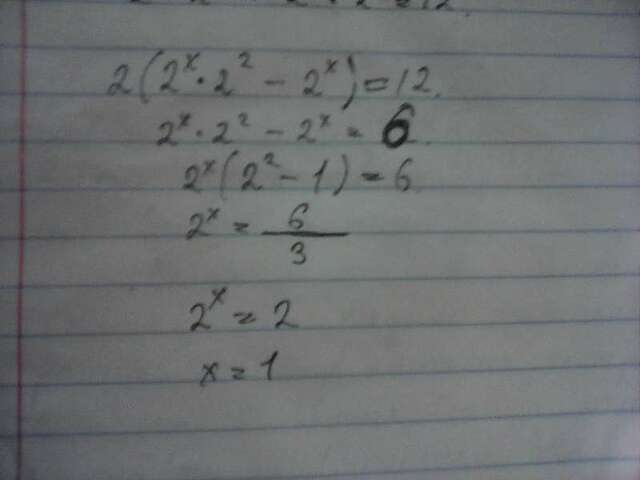 2(2ˣ·2² - 2ˣ) = 12.
2ˣ·2² - 2ˣ = 6.
2ˣ(2² - 1) = 6
2ˣ = 6/3
2ˣ = 2
x = 1